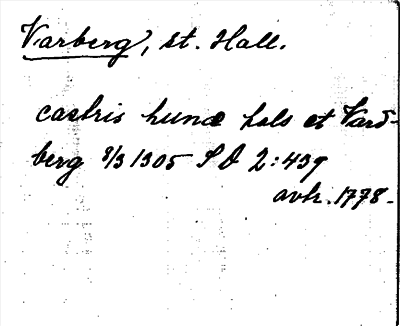 Varberg, st. Hall.
castris hunæ hals et Vard-
berg 8/3 1305 SD 2:439
avkr. 1778.